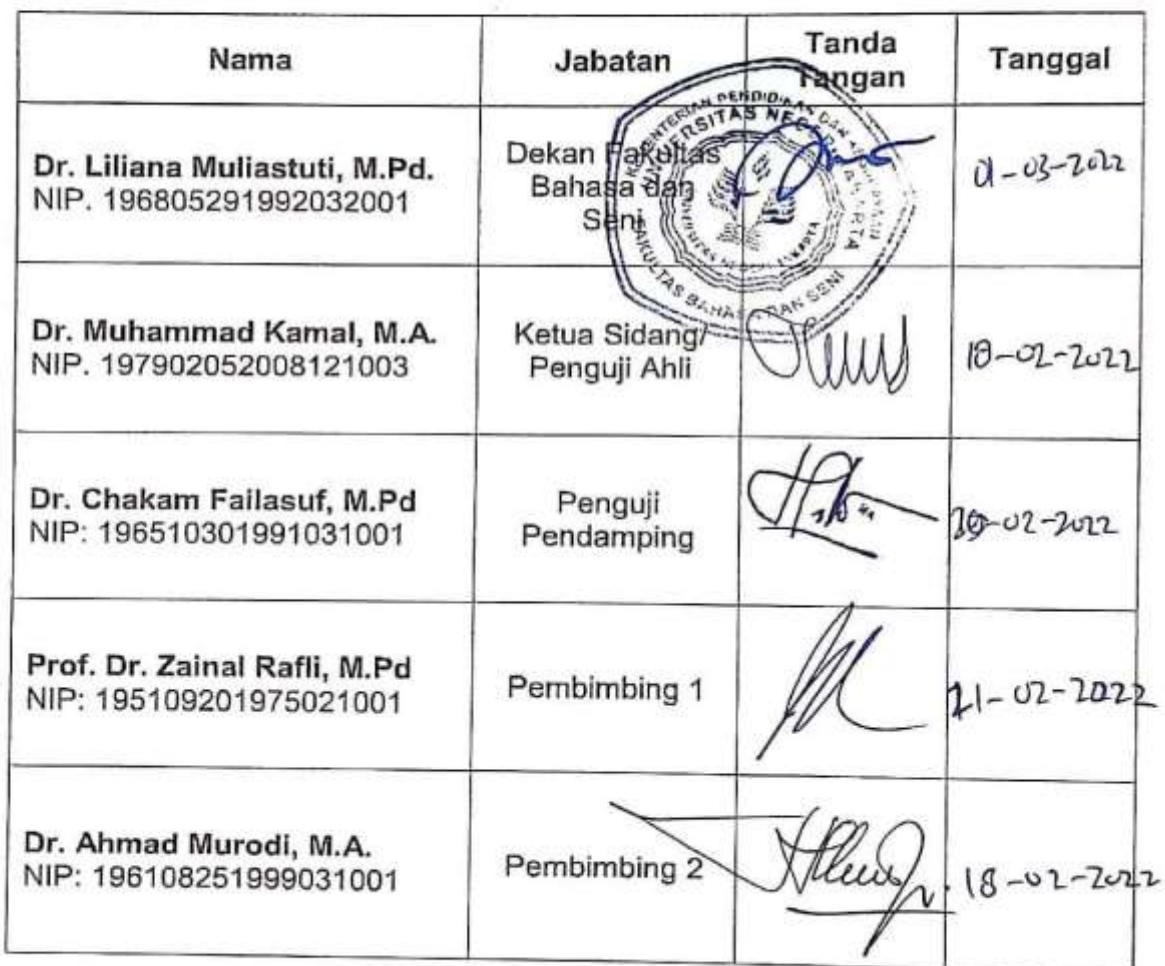 Nama Jabatan Tanda Tangan Tanggal
Dr. Liliana Muliastuti, M.Pd.
NIP. 196805291992032001
Dekan Fakultas
Bahasa dan
Seni
01-03-2022
KEMENTERIAN PENDIDIKAN DAN KEBUDAYAAN
UNIVERSITAS NEGERI JAKARTA
UNIVERSITAS NEGERI JAKARTA
FAKULTAS BAHASA DAN SENI
Dr. Muhammad Kamal, M.A.
NIP. 197902052008121003
Ketua Sidang/
Penguji Ahli
18-02-2022
Dr. Chakam Failasuf, M.Pd
NIP: 196510301991031001
Penguji
Pendamping
-02-2022
Prof. Dr. Zainal Rafli, M.Pd
NIP: 195109201975021001
Pembimbing 1
21-02-2022
Dr. Ahmad Murodi, M.A.
NIP: 196108251999031001
Pembimbing 2
18-02-2022